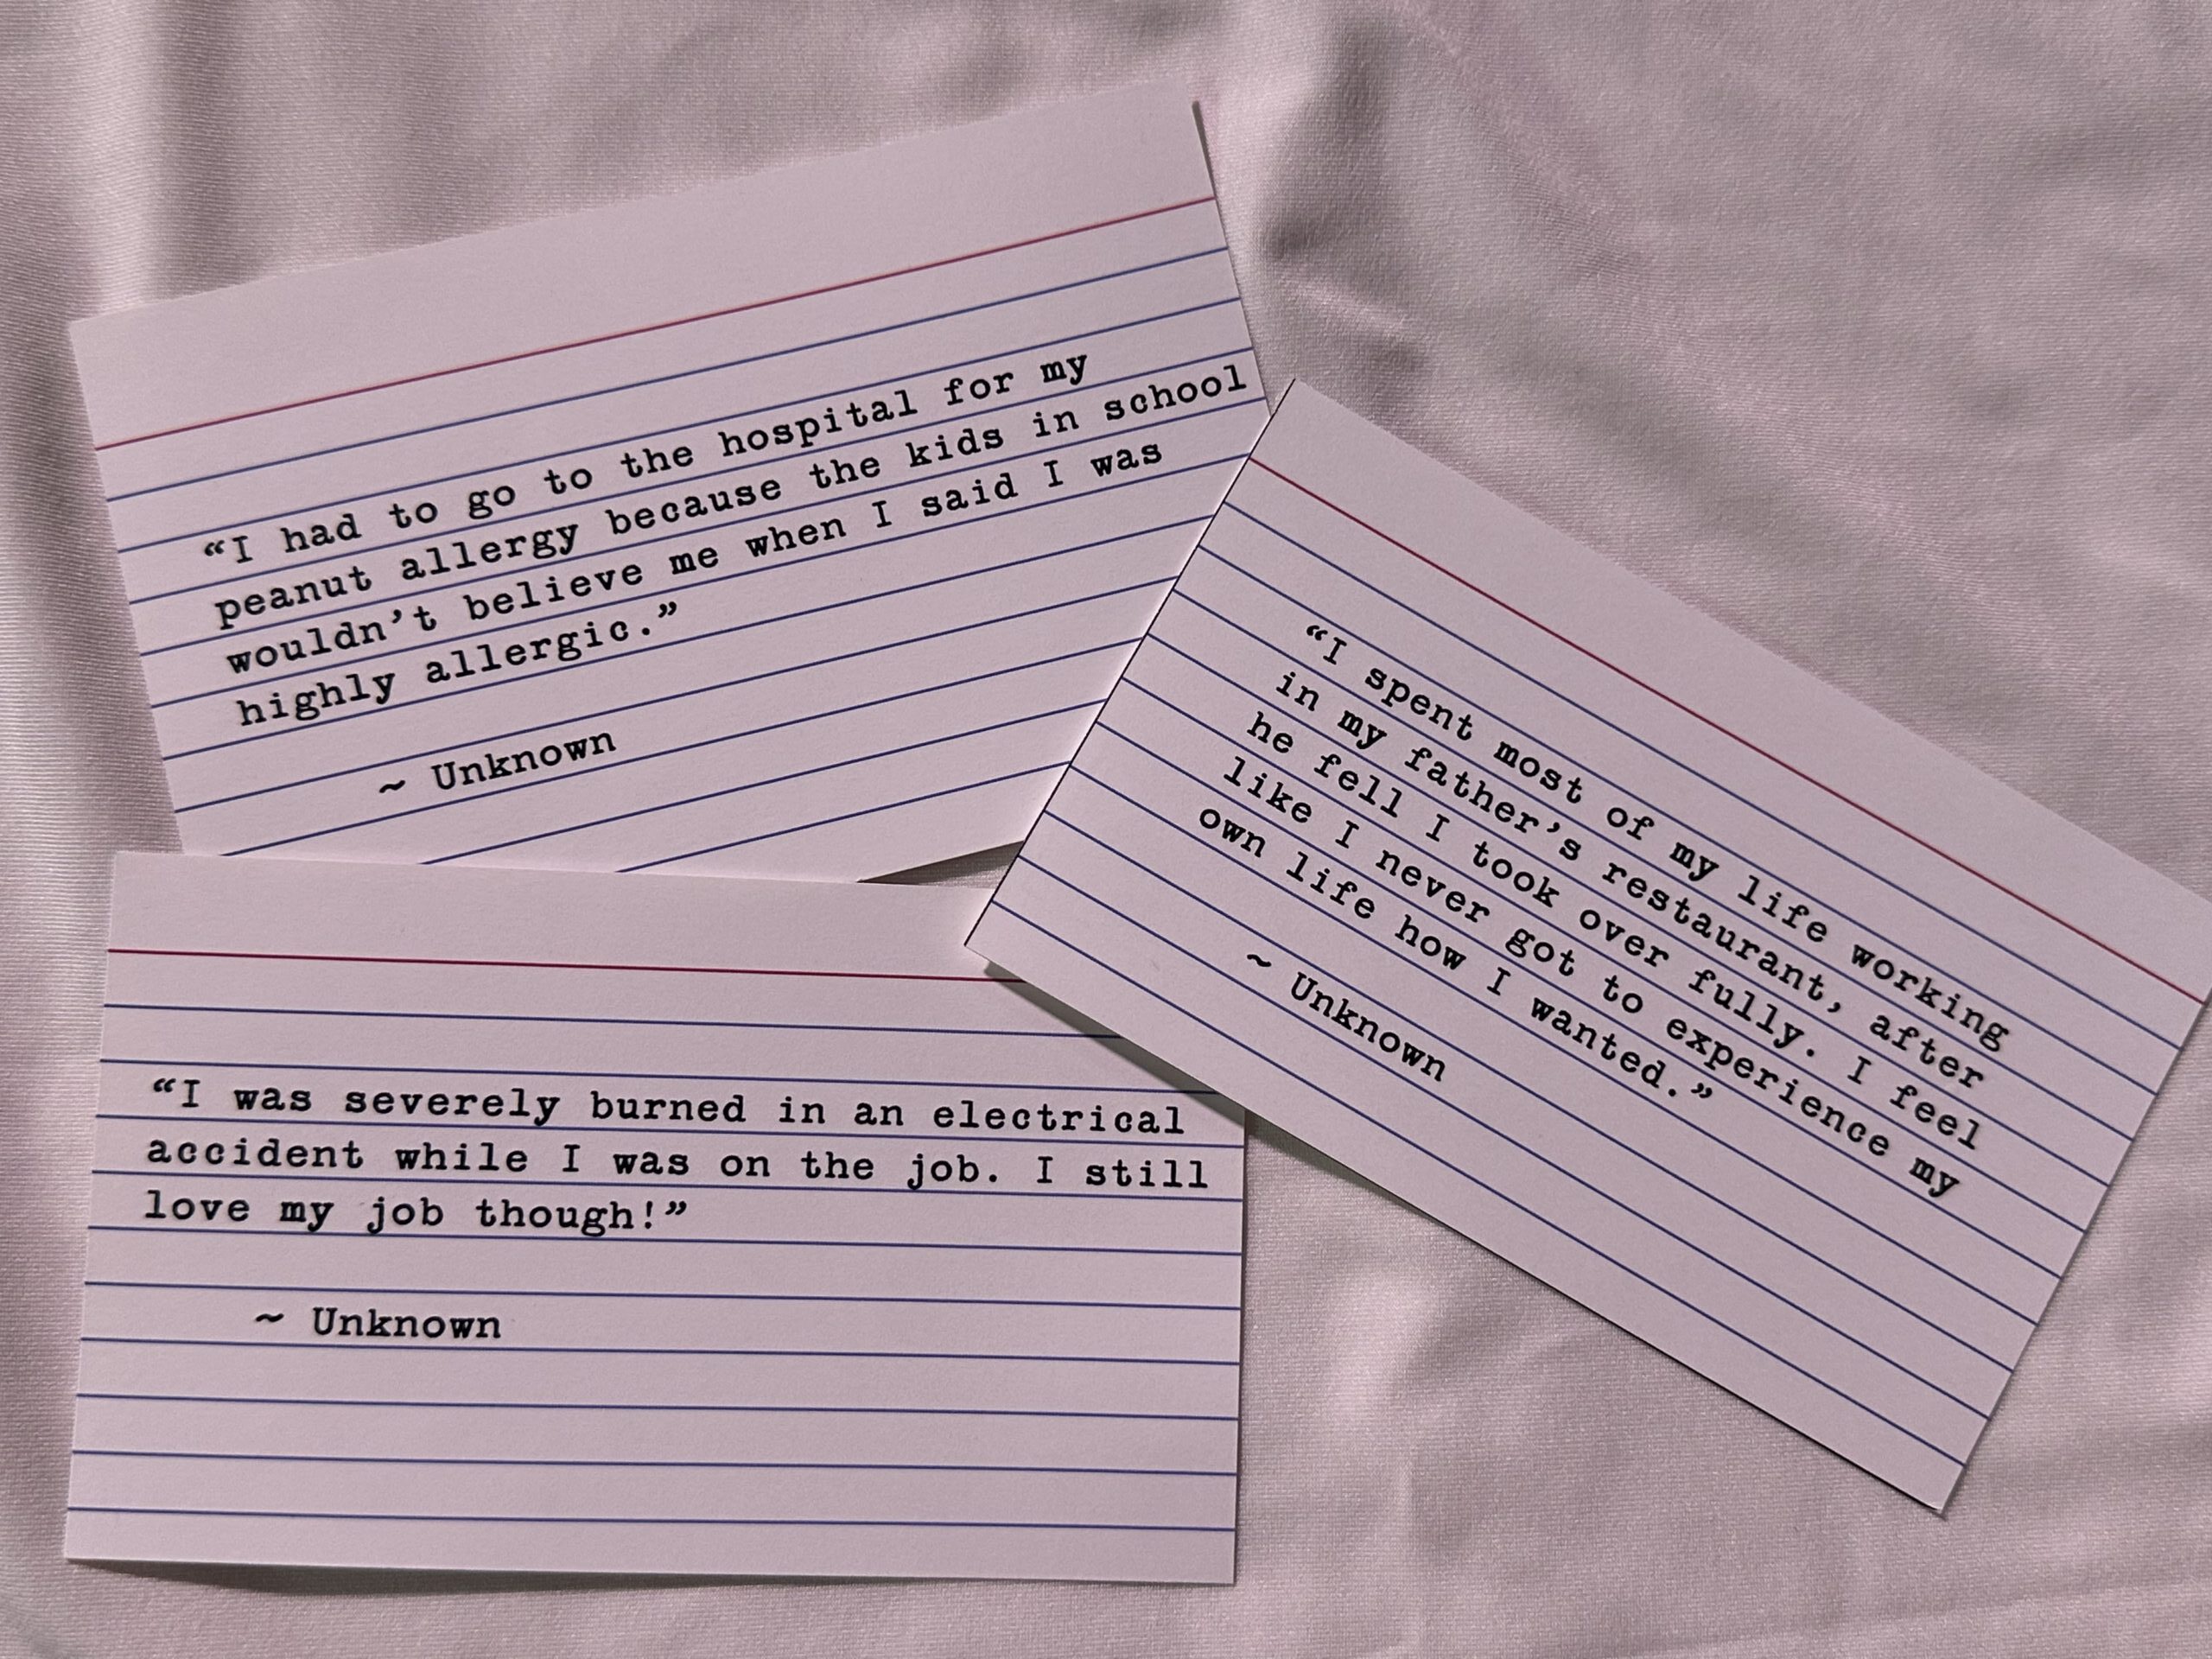 “I had to go to the hospital for my
peanut allergy because the kids in school
wouldn’t believe me when I said I was
highly allergic.”
~ Unknown
“I spent most of my life working
in my father’s restaurant, after
he fell I took over fully. I feel
like I never got to experience my
own life how I wanted.”
~ Unknown
“I was severely burned in an electrical
accident while I was on the job. I still
love my job though!”
~ Unknown